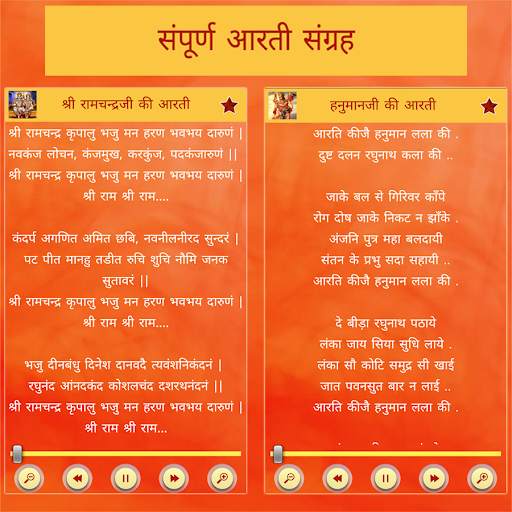 संपूर्ण आरती संग्रह
श्री रामचन्द्रजी की आरती
श्री रामचन्द्र कृपालु भजु मन हरण भवभय दारुणं |
नवकंज लोचन, कंजमुख, करकुंज, पदकंजारुणं ||
श्री रामचन्द्र कृपालु भजु मन हरण भवभय दारुणं |
श्री राम श्री राम....
कंदर्प अगणित अमित छबि, नवनीलनीरद सुन्दरं |
पट पीत मानहु तडीत रुचि शुचि नौमि जनक
सुतावरं ||
श्री रामचन्द्र कृपालु भजु मन हरण भवभय दारुणं |
श्री राम श्री राम....
भजु दीनबंधु दिनेश दानवदै त्यवंशनिकंदनं |
रघुनंद आंनदकंद कोशलचंद दशरथनंदनं ||
श्री रामचन्द्र कृपालु भजु मन हरण भवभय दारुणं |
श्री राम श्री राम...
हनुमानजी की आरती
आरति कीजै हनुमान लला की .
दुष्ट दलन रघुनाथ कला की ..
जाके बल से गिरिवर काँपे
रोग दोष जाके निकट न झाँके .
अंजनि पुत्र महा बलदायी
संतन के प्रभु सदा सहायी ..
आरति कीजै हनुमान लला की .
दे बीड़ा रघुनाथ पठाये
लंका जाय सिया सुधि लाये .
लंका सौ कोटि समुद्र सी खाई
जात पवनसुत बार न लाई ..
आरति कीजै हनुमान लला की .